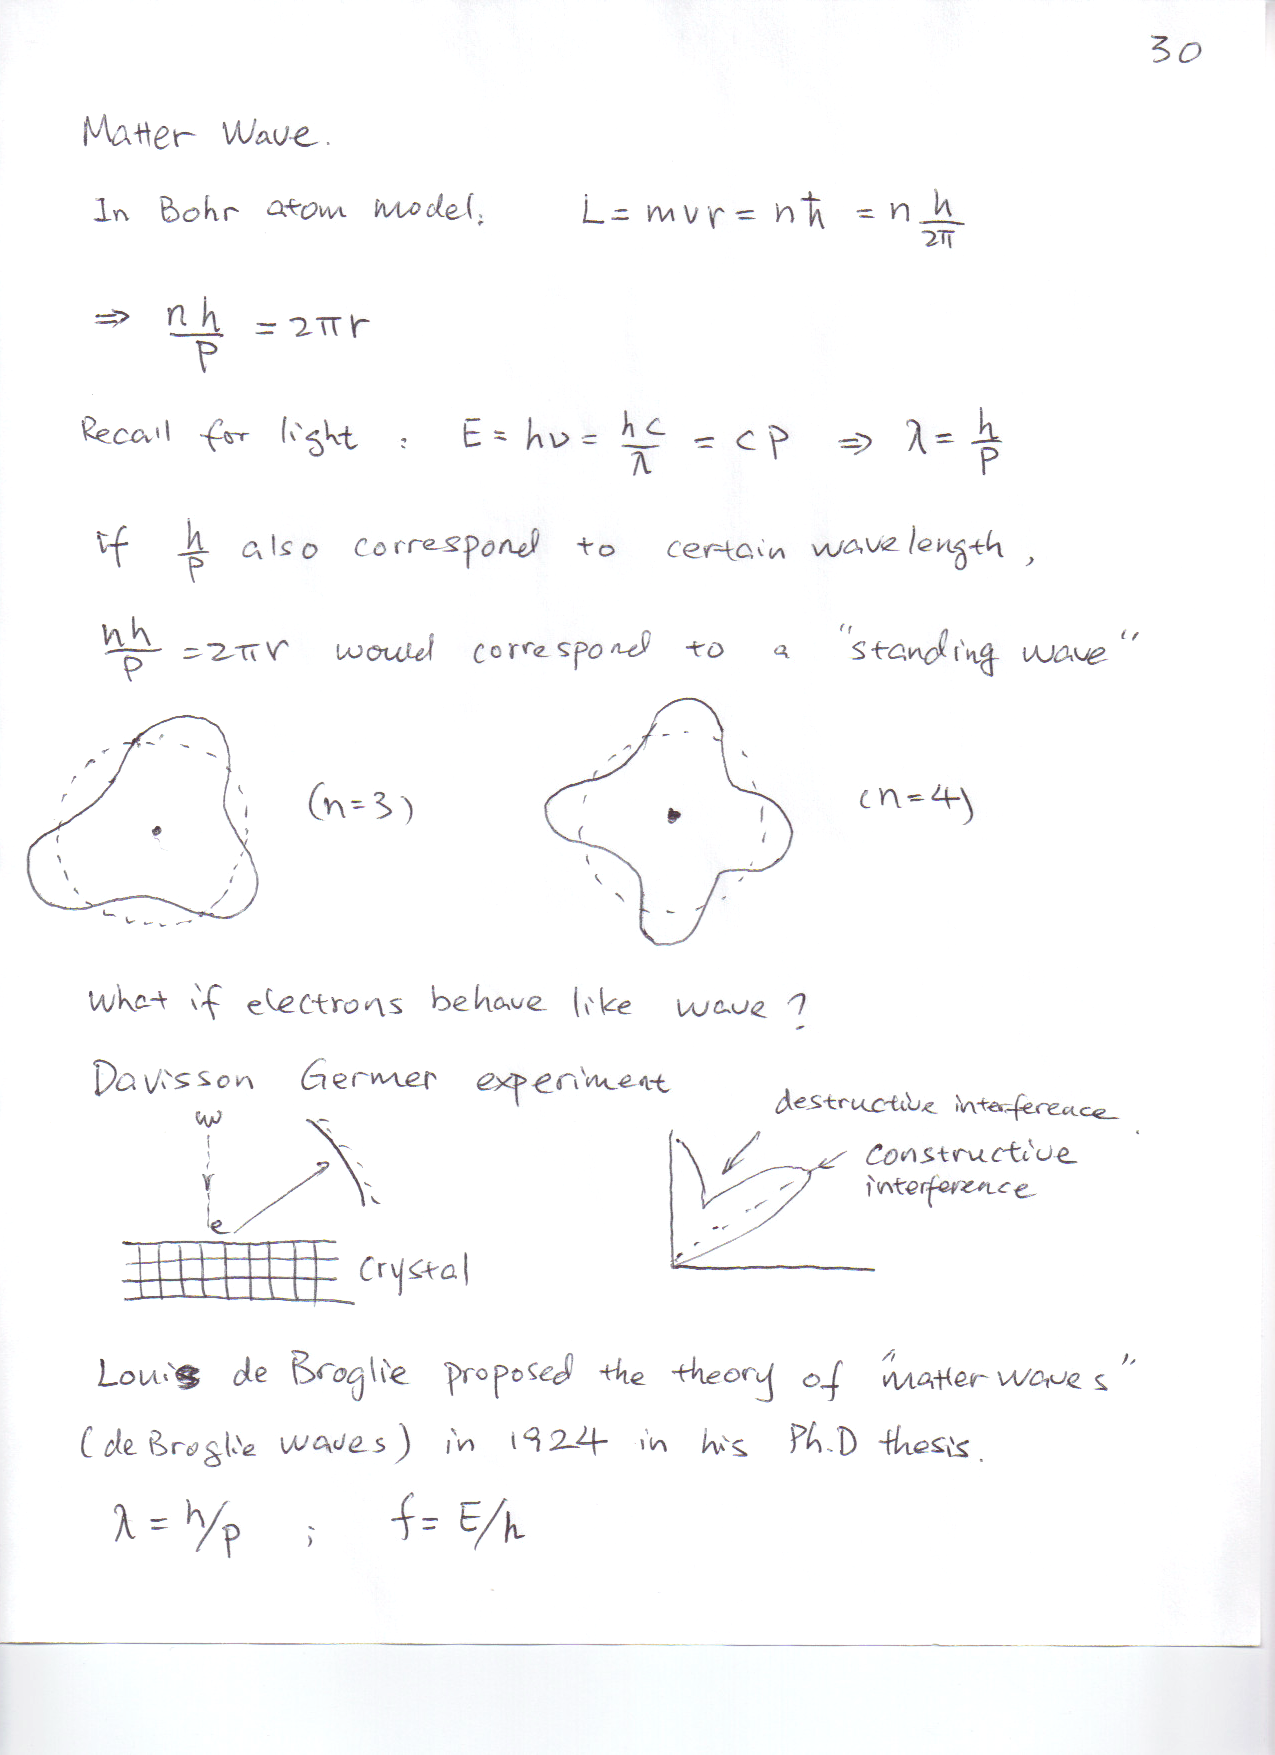 30
Matter Wave.
In Bohr atom model, L = mvr = nħ = n h/2π
⇒ nh/p = 2πr
Recall for light : E = hν = hc/λ = cp ⇒ λ = h/p
if h/p also correspond to certain wavelength,
nh/p = 2πr would correspond to a "standing wave"
(n=3) (n=4)
What if electrons behave like wave ?
Davisson Germer experiment
destructive interference
constructive
interference
e
crystal
Louis de Broglie proposed the theory of "matter waves"
(de Broglie waves) in 1924 in his Ph.D thesis.
λ = h/p ; f = E/h